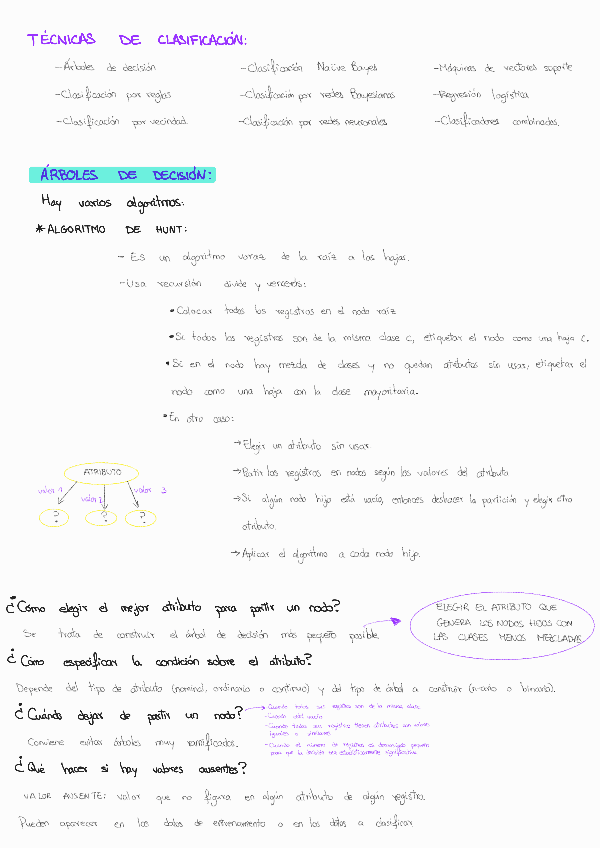 TÉCNICAS DE CLASIFICACIÓN:
-Árboles de decisión
-Clasificación Naïve Bayes
-Máquinas de vectores soporte
-Clasificación por reglas
-Clasificación por redes Bayesianas
-Regresión logística
-Clasificación por vecindad.
-Clasificación por redes neuronales
-Clasificadores combinados.
ÁRBOLES DE DECISIÓN:
Hay varios algoritmos:
*ALGORITMO DE HUNT:
- Es un algoritmo voraz de la raíz a las hojas.
-Usa recursión divide y vencerás:
•Colocar todos los registros en el nodo raíz
•Si todos los registros son de la misma clase C, etiquetar el nodo como una hoja C.
•Si en el nodo hay mezcla de clases y no quedan atributos sin usar, etiquetar el
nodo como una hoja con la clase mayoritaria.
•En otro caso:
→Elegir un atributo sin usar.
→Partir los registros en nodos según los valores del atributo
→Si algún nodo hijo está vacío, entonces deshacer la partición y elegir otro
atributo.
→Aplicar el algoritmo a cada nodo hijo.
ATRIBUTO
valor 1
valor 2
valor 3
?
?
?
¿Cómo elegir el mejor atributo para partir un nodo?
Se trata de construir el árbol de decisión más pequeño posible.
ELEGIR EL ATRIBUTO QUE
GENERA LOS NODOS HIJOS CON
LAS CLASES MENOS MEZCLADAS
¿Cómo especificar la condición sobre el atributo?
Depende del tipo de atributo (nominal, ordinario o continuo) y del tipo de árbol a construir (n-ario o binario).
¿Cuándo dejar de partir un nodo?
-Cuando todos sus registros son de la misma clase
-Cuando esté vacío
-Cuando todos sus registros tienen atributos con valores
iguales o similares
-Cuando el número de registros es demasiado pequeño
para que la división sea estadísticamente significativa
Conviene evitar árboles muy ramificados.
¿Qué hacer si hay valores ausentes?
VALOR AUSENTE: valor que no figura en algún atributo de algún registro.
Pueden aparecer en los datos de entrenamiento o en los datos a clasificar